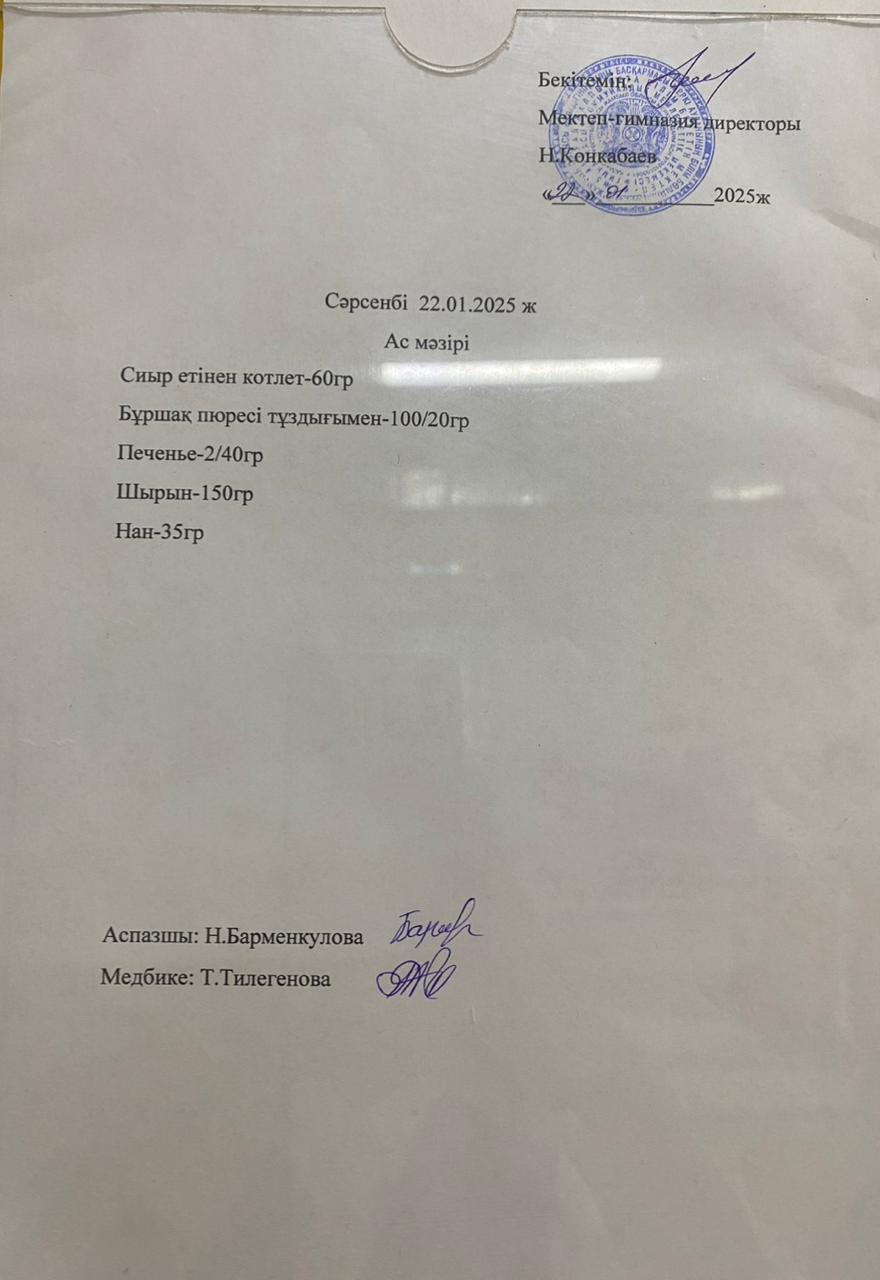 Бекітемін:
Мектеп-гимназия директоры
Н.Қонкабаев
«22» 01 2025ж
Сәрсенбі 22.01.2025 ж
Ас мәзірі
Сиыр етінен котлет-60гр
Бұршақ пюресі тұздығымен-100/20гр
Печенье-2/40гр
Шырын-150гр
Нан-35гр
Аспазшы: Н.Барменкулова
Медбике: Т.Тилегенова